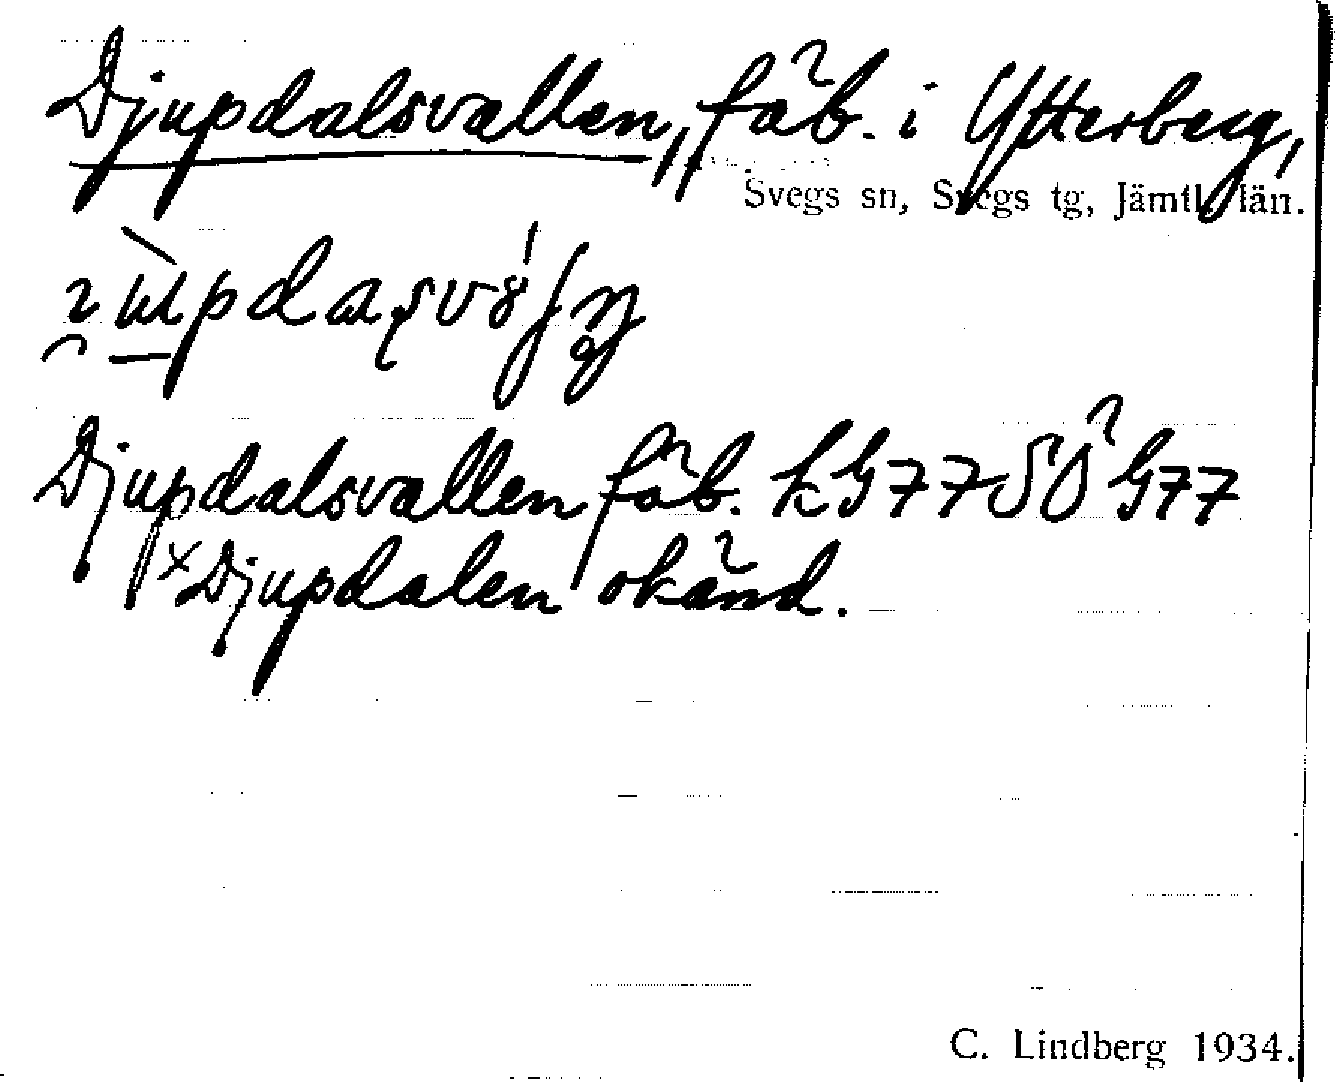 Djupdalsvallen, fäb. i Ytterberg,
Svegs sn, Svegs tg, Jämtl. län.
Djupdalsvallen fäb. kG77SÖG77
×Djupdalen okänd.
C. Lindberg 1934.